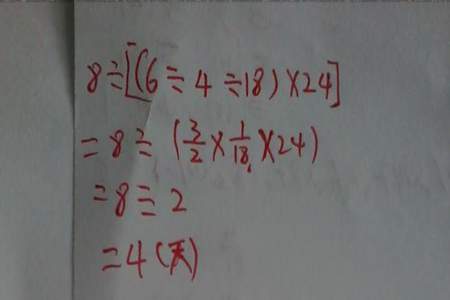 8÷[(6÷4÷18)×24]
=8÷(3/2×1/18×24)
=8÷2
=4(天)